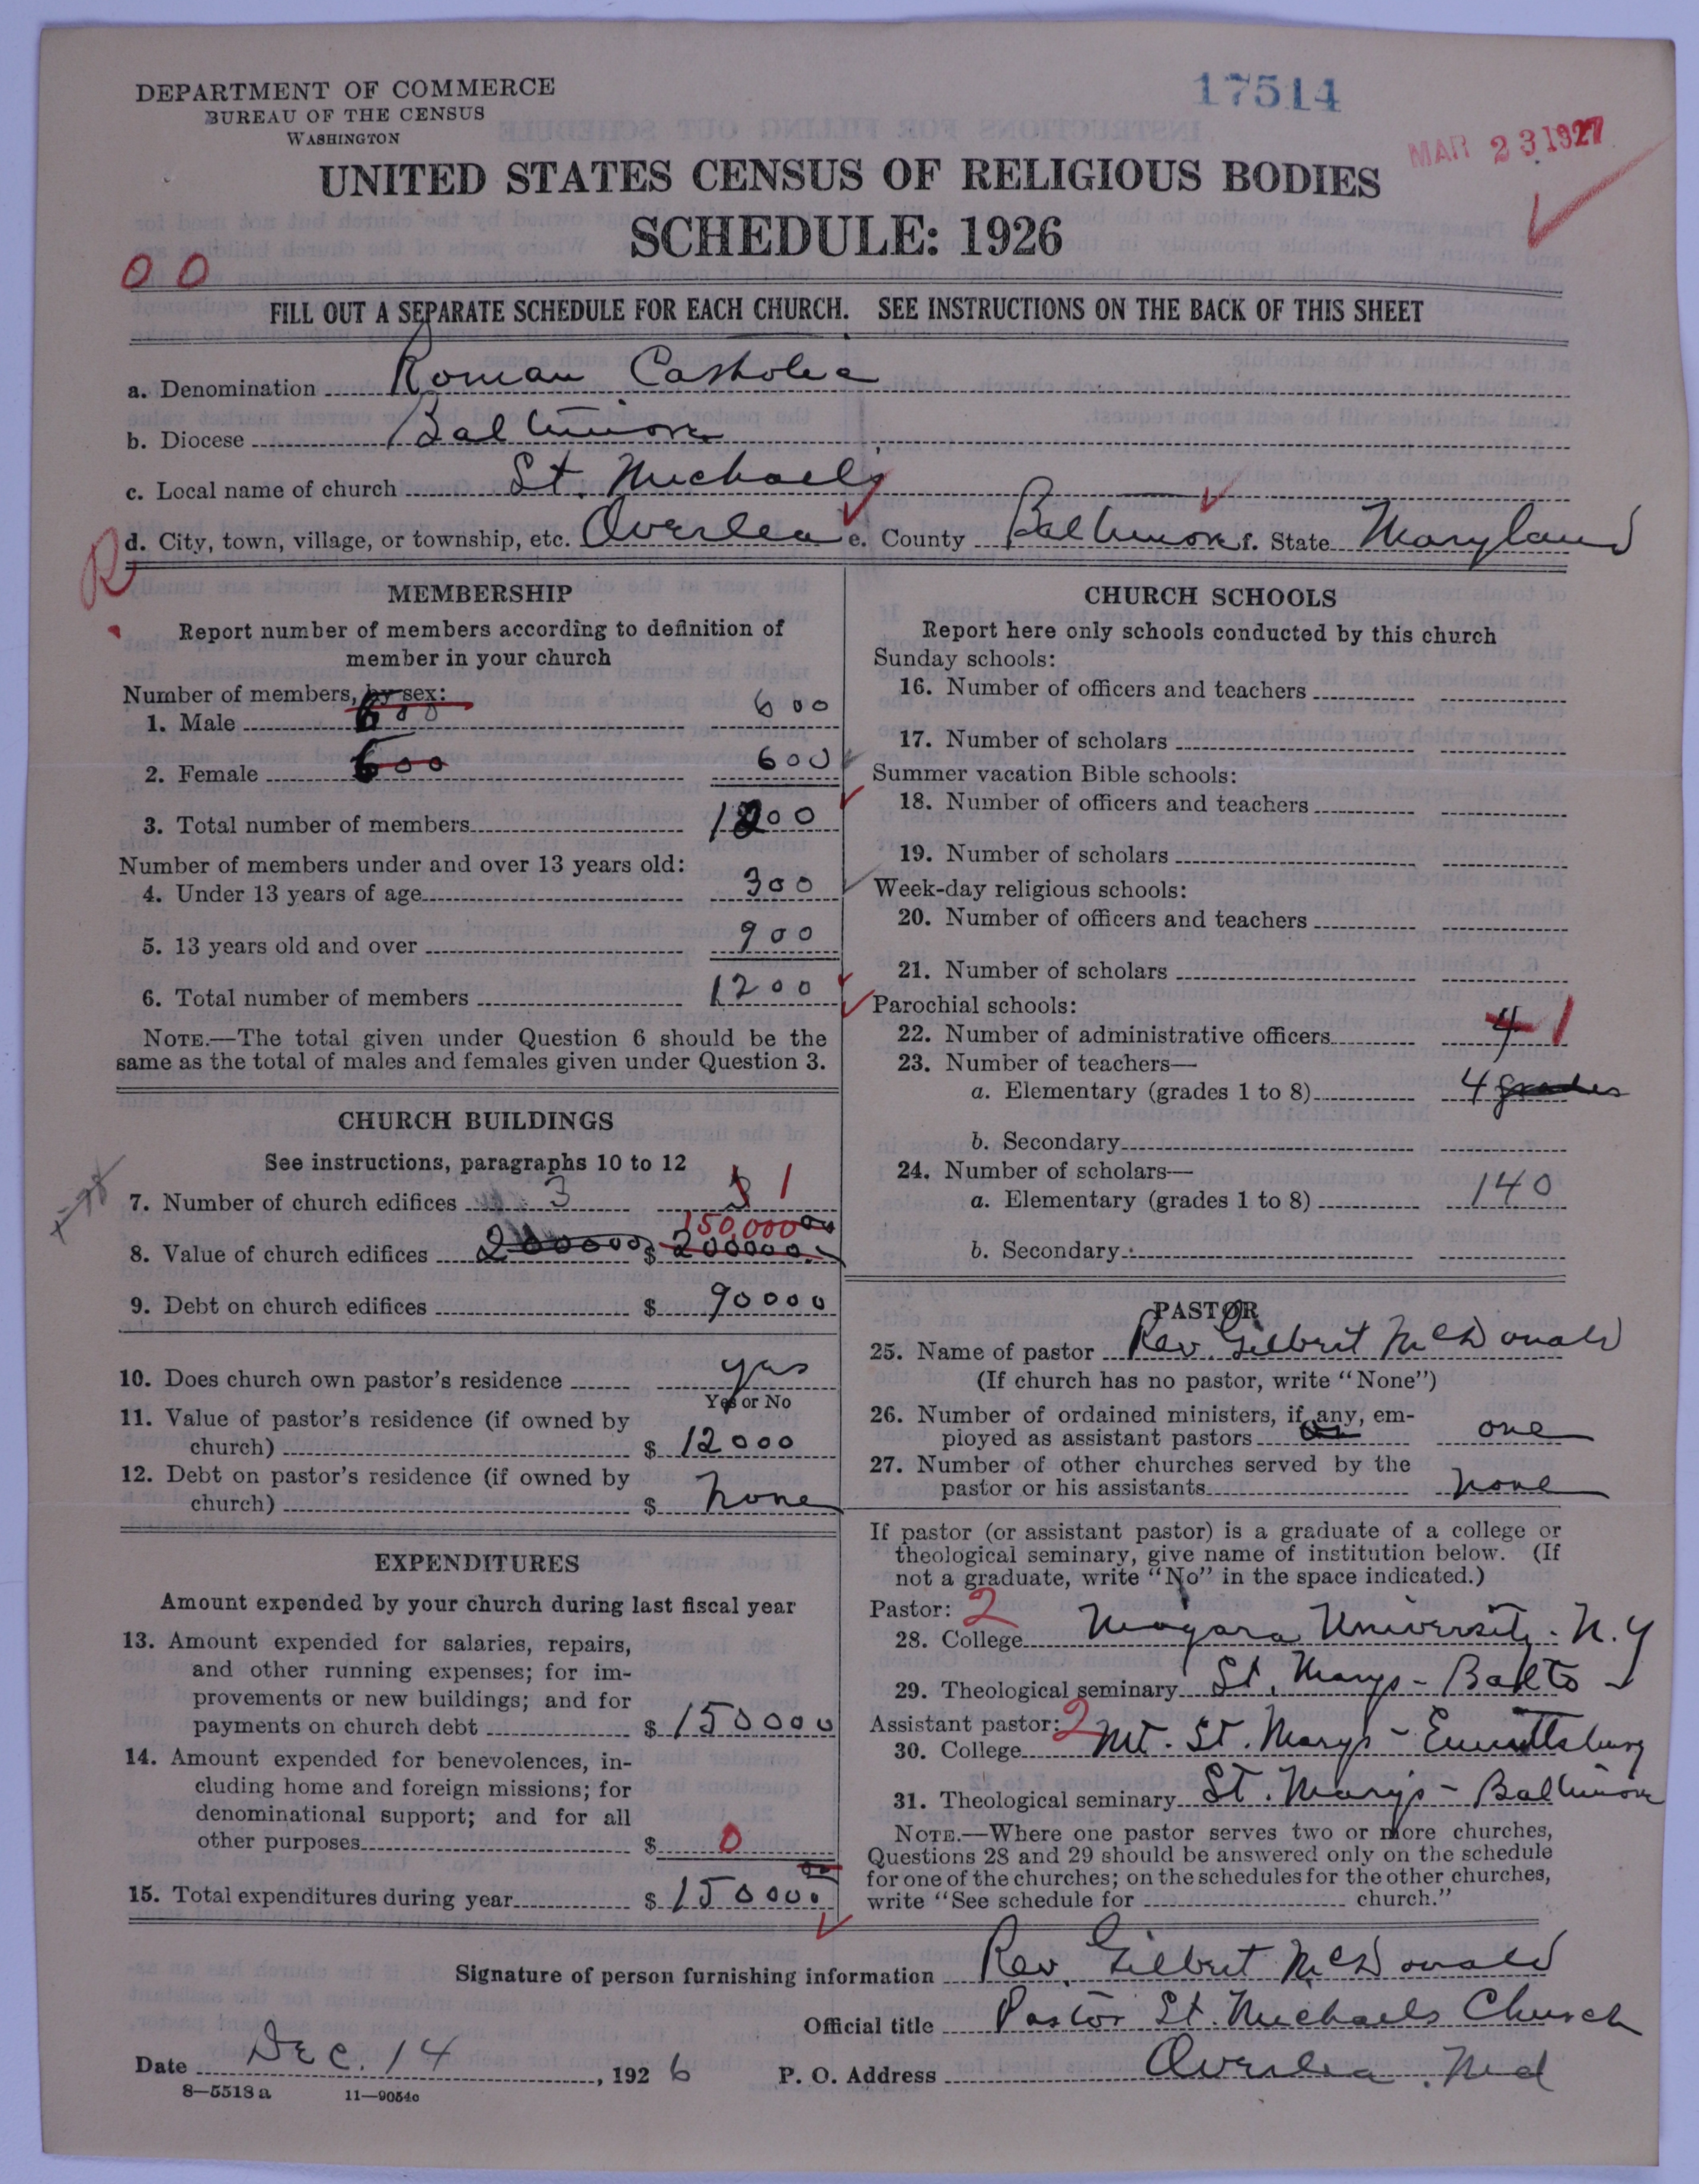 DEPARTMENT OF COMMERCE
BUREAU OF THE CENSUS
WASHINGTON
17514
MAR 23 1927
UNITED STATES CENSUS OF RELIGIOUS BODIES
SCHEDULE: 1926
0 0
FILL OUT A SEPARATE SCHEDULE FOR EACH CHURCH. SEE INSTRUCTIONS ON THE BACK OF THIS SHEET
a. Denomination Roman Catholic
b. Diocese Baltimore
c. Local name of church St. Michael's
R
d. City, town, village, or township, etc. Overlea e. County Baltimore f. State Maryland
MEMBERSHIP
Report number of members according to definition of
member in your church
Number of members, by sex:
1. Male 600 600
2. Female 600 600
3. Total number of members 1200
Number of members under and over 13 years old:
4. Under 13 years of age 300
5. 13 years old and over 900
6. Total number of members 1200
NOTE.—The total given under Question 6 should be the
same as the total of males and females given under Question 3.
CHURCH BUILDINGS
See instructions, paragraphs 10 to 12
7. Number of church edifices 3 3 1
150,000
8. Value of church edifices 200000 $ 200000
9. Debt on church edifices $ 90000
10. Does church own pastor's residence yes
Yes or No
11. Value of pastor's residence (if owned by
church) $ 12000
12. Debt on pastor's residence (if owned by
church) $ None
EXPENDITURES
Amount expended by your church during last fiscal year
13. Amount expended for salaries, repairs,
and other running expenses; for im-
provements or new buildings; and for
payments on church debt $ 150000
14. Amount expended for benevolences, in-
cluding home and foreign missions; for
denominational support; and for all
other purposes $ 0
15. Total expenditures during year $ 150000
CHURCH SCHOOLS
Report here only schools conducted by this church
Sunday schools:
16. Number of officers and teachers
17. Number of scholars
Summer vacation Bible schools:
18. Number of officers and teachers
19. Number of scholars
Week-day religious schools:
20. Number of officers and teachers
21. Number of scholars
Parochial schools:
22. Number of administrative officers 4 1
23. Number of teachers—
a. Elementary (grades 1 to 8) 4 grades
b. Secondary
24. Number of scholars—
a. Elementary (grades 1 to 8) 140
b. Secondary
PASTOR
25. Name of pastor Rev. Gilbert McDonald
(If church has no pastor, write "None")
26. Number of ordained ministers, if any, em-
ployed as assistant pastors one
27. Number of other churches served by the
pastor or his assistants none
If pastor (or assistant pastor) is a graduate of a college or
theological seminary, give name of institution below. (If
not a graduate, write "No" in the space indicated.)
Pastor: 2
28. College Niagara University. N.Y
29. Theological seminary St. Marys - Balto
Assistant pastor: 2
30. College Mt. St. Marys - Emmittsburg
31. Theological seminary St. Mary's - Baltimore
NOTE.—Where one pastor serves two or more churches,
Questions 28 and 29 should be answered only on the schedule
for one of the churches; on the schedules for the other churches,
write "See schedule for church."
Signature of person furnishing information Rev. Gilbert McDonald
Official title Pastor St. Michaels Church
Date Dec. 14, 1926 P. O. Address Overlea. Md
8—5518 a 11—9054c